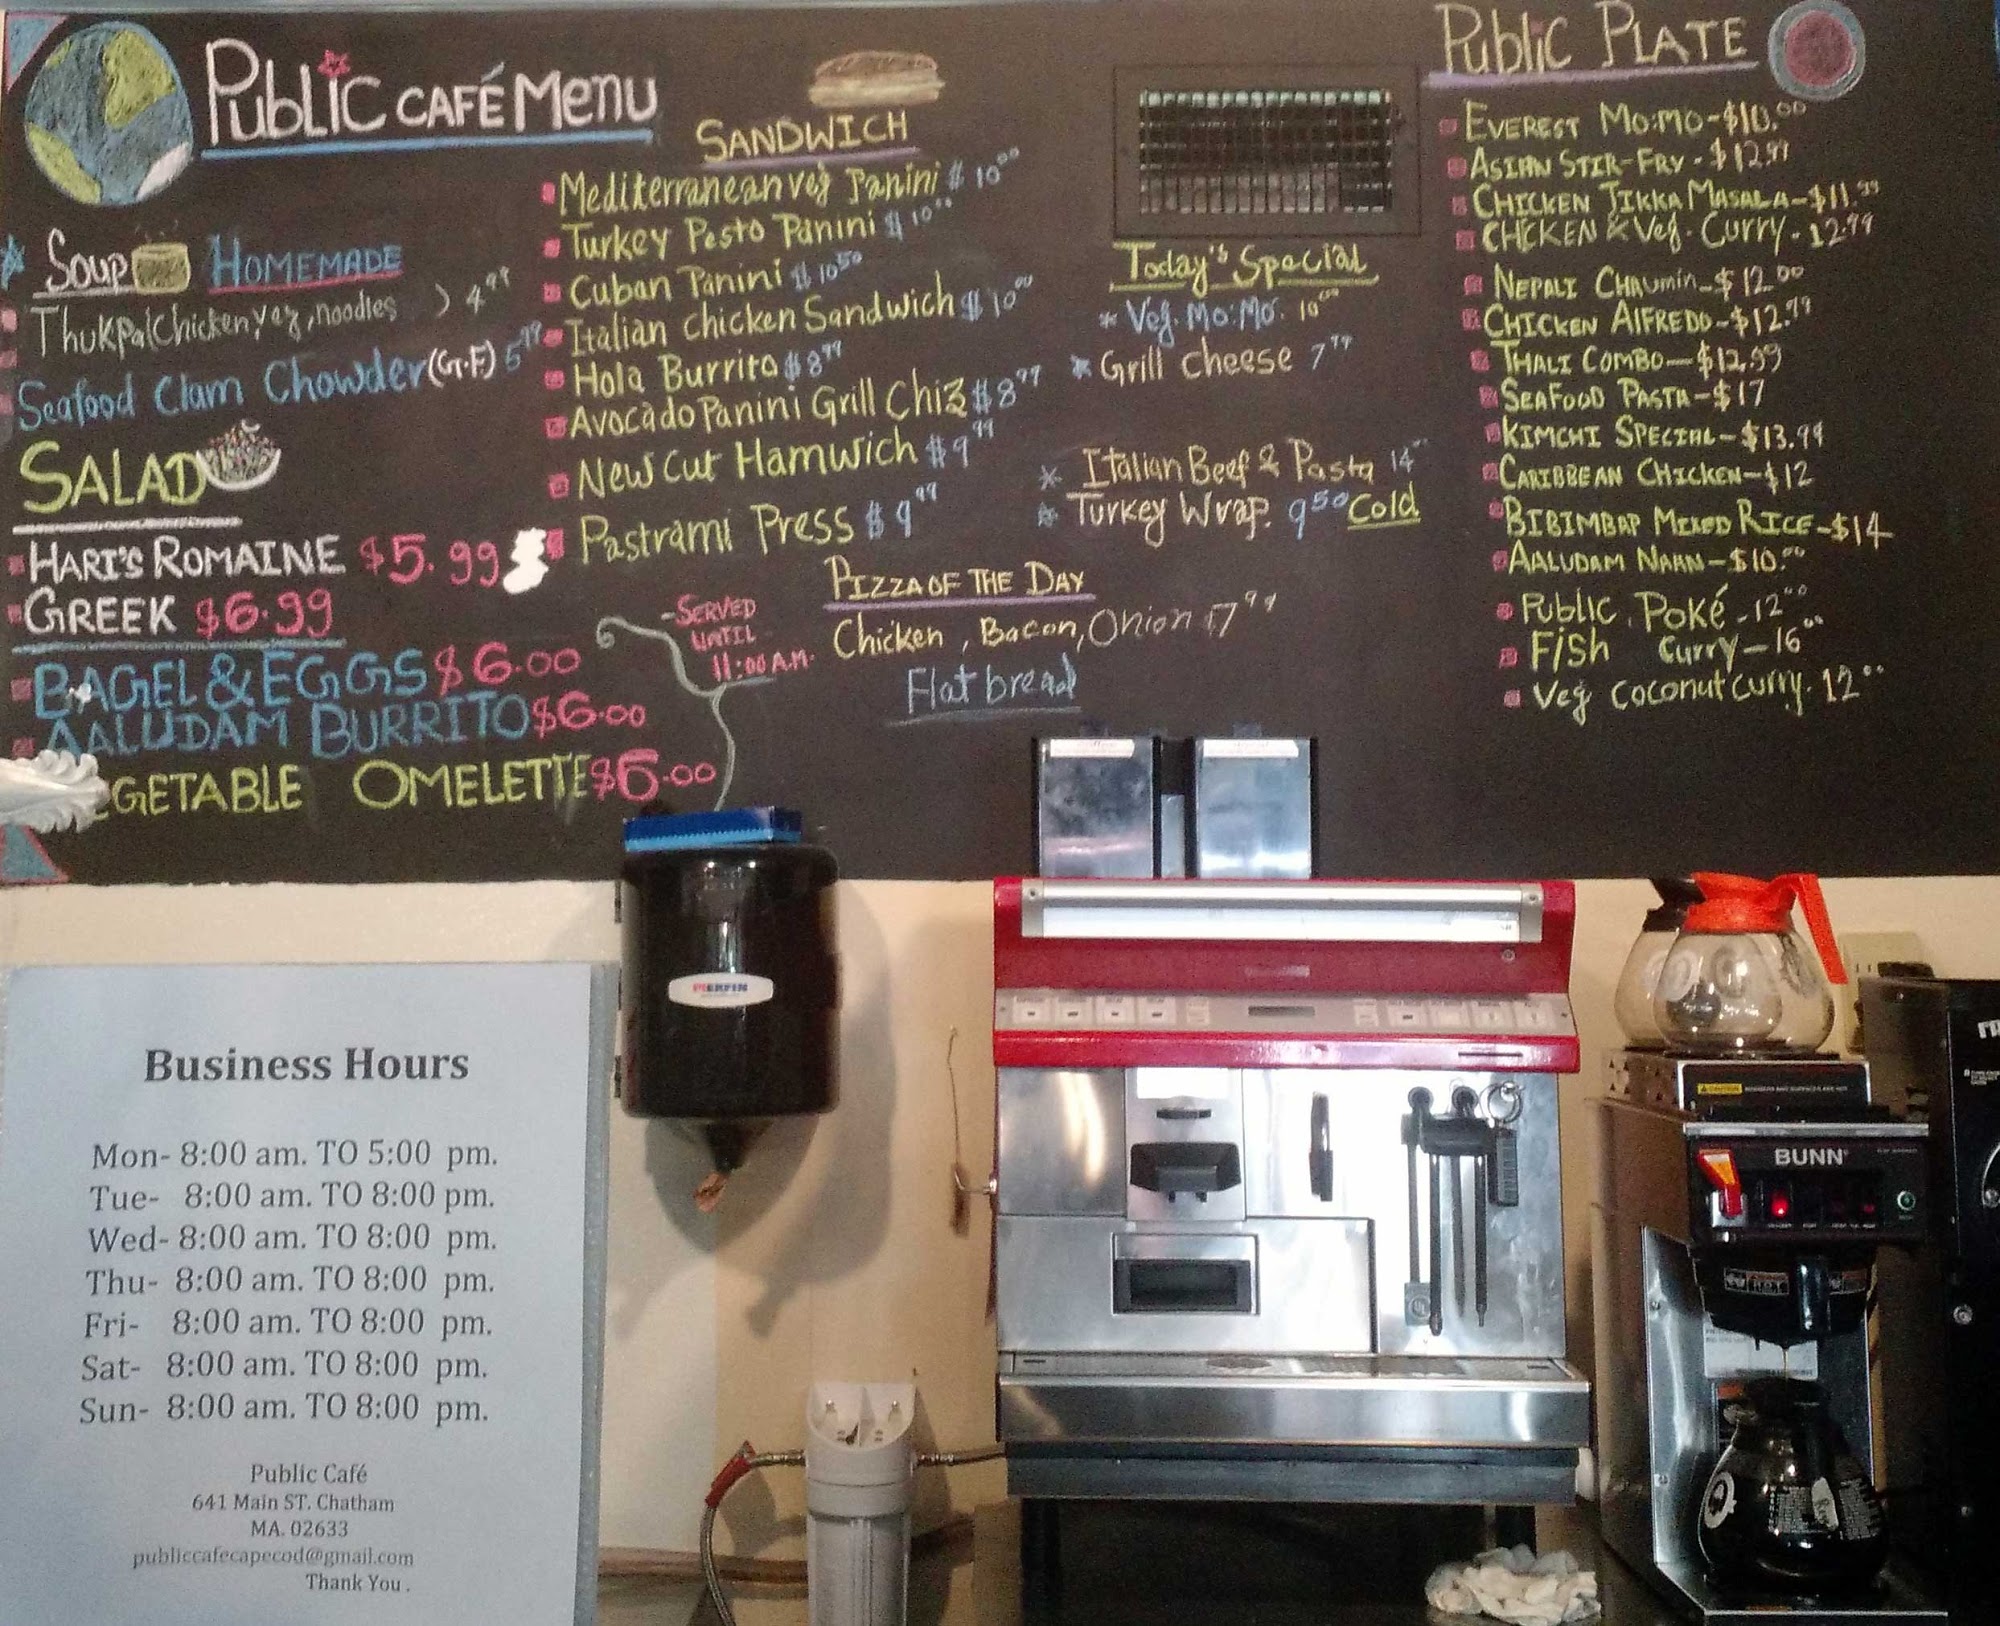 Public CAFÉ Menu
Soup HOMEMADE
Thukpa(Chicken, veg, noodles ) 4.99
Seafood Clam Chowder(G.F) 5.99
SALAD
HARI'S ROMAINE $5.99
GREEK $6.99
BAGEL & EGGS $6.00
AALUDAM BURRITO $6.00
GETABLE OMELETTE $6.00
-SERVED
UNTIL
11:00 A.M.
SANDWICH
Mediterranean veg Panini $10.00
Turkey Pesto Panini $10.00
Cuban Panini $10.50
Italian chicken Sandwich $10.00
Hola Burrito $8.99
Avocado Panini Grill Chiz $8.99
New Cut Hamwich $9.99
Pastrami Press $9.99
PIZZA OF THE DAY
Chicken, Bacon, Onion 17.99
Flat bread
Today's Special
* Veg. Mo:Mo. 10.00
* Grill cheese 7.99
* Italian Beef & Pasta 14
* Turkey Wrap. 9.50 Cold
Public PLATE
EVEREST MO:MO-$10.00
ASIAN STIR-FRY-$12.99
CHICKEN TIKKA MASALA-$11.99
CHICKEN & Veg. Curry-12.99
NEPALI CHAUMIN-$12.00
CHICKEN AlFREDO-$12.99
THALI COMBO-$12.99
SEAFOOD PASTA-$17
KIMCHI SPECIAL-$13.99
CARIBBEAN CHICKEN-$12
BIBIMBAP MIXED RICE-$14
AALUDAM NAAN-$10.00
PUBLIC. POKÉ-12.00
FISH Curry-16.00
Veg coconut curry. 12.00
Business Hours
Mon- 8:00 am. TO 5:00 pm.
Tue- 8:00 am. TO 8:00 pm.
Wed- 8:00 am. TO 8:00 pm.
Thu- 8:00 am. TO 8:00 pm.
Fri- 8:00 am. TO 8:00 pm.
Sat- 8:00 am. TO 8:00 pm.
Sun- 8:00 am. TO 8:00 pm.
Public Café
641 Main ST. Chatham
MA. 02633
publiccafecapecod@gmail.com
Thank You .
CAUTION
BUNN